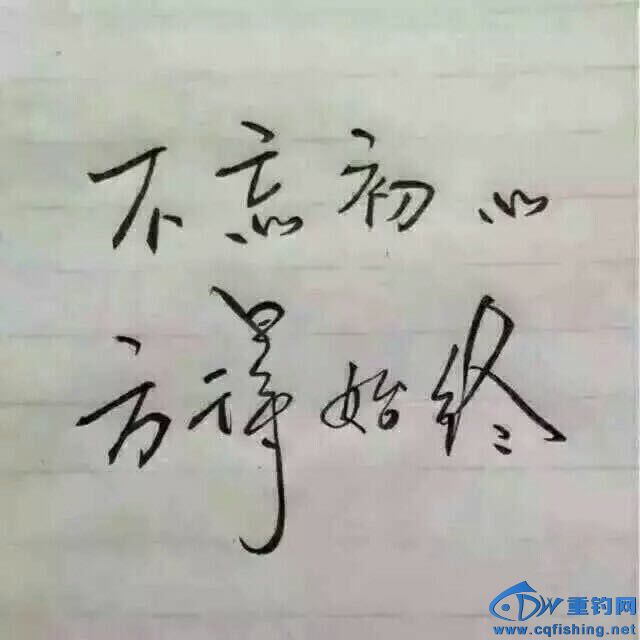 不忘初心
方得始终
DW重钓网
www.cqfishing.net